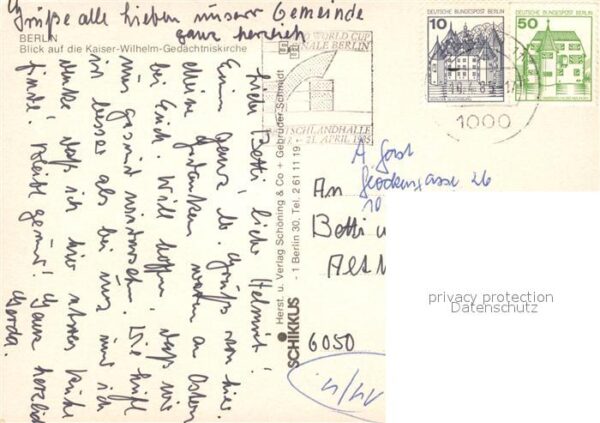 Grüße alle lieben unserer Gemeinde
ganz herzlich
BERLIN
Blick auf die Kaiser-Wilhelm-Gedächtniskirche
Liebe Betti, lieber Helmut!
Einen ganz lb. Gruß von hier.
Meine Gedanken waren an Ostern
bei Euch. Will hoffen, daß wir
uns gesund wiedersehen. Die Luft
ist besser als bei uns und ich
denke, daß ich hier etwas Ruhe
finde. Bleibt gesund! Ganz herzlich
Gerda.
Herst. u. Verlag Schöning & Co + Gebrüder Schmidt
- 1 Berlin 30, Tel. 2 61 11 19 -
SCHIKKUS
WORLD CUP
FINALE BERLIN
DEUTSCHLANDHALLE
21. APRIL 1985
DEUTSCHE BUNDESPOST BERLIN
10
DEUTSCHE BUNDESPOST BERLIN
50
1000
Glockengasse 26
10
An
Betti u
6050
privacy protection
Datenschutz